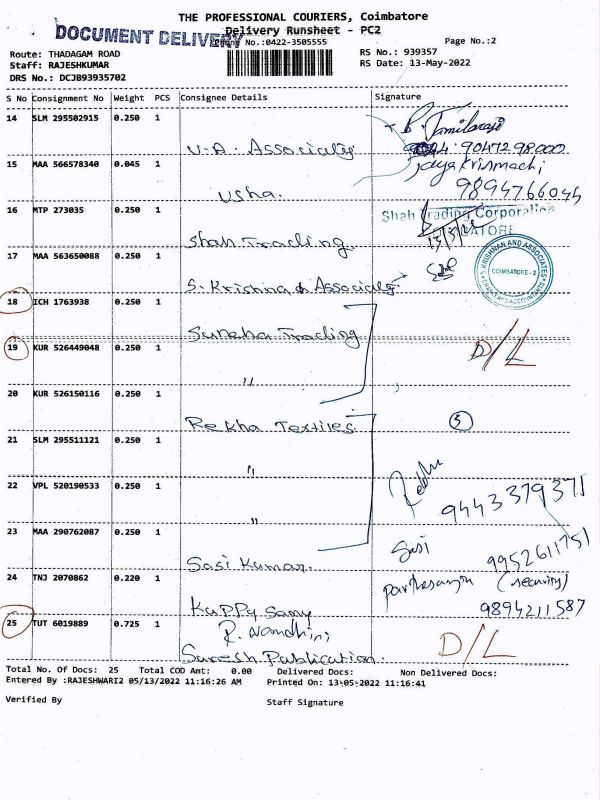 THE PROFESSIONAL COURIERS, Coimbatore
DOCUMENT DELIVERY
Delivery Runsheet - PC2
No.:0422-3505555
Page No.:2
Route: THADAGAM ROAD
Staff: RAJESHKUMAR
DRS No.: DCJB93935702
RS No.: 939357
RS Date: 13-May-2022
S No Consignment No Weight PCS Consignee Details Signature
14 SLM 295502915 0.250 1
U.A. Associates
9047298000
15 MAA 566578340 0.045 1
Usha.
9894766044
16 MTP 273035 0.250 1
Shah Trading Corporation
COIMBATORE
Shah Trading.
17 MAA 563650088 0.250 1
S. KRISHNAN AND ASSOCIATES
COIMBATORE - 2
CHARTERED ACCOUNTANTS
S. Krishna & Associates
18 ICH 1763938 0.250 1
Suneha Trading
19 KUR 526449048 0.250 1
D/L
"
20 KUR 526150116 0.250 1
Rekha Textiles
5
21 SLM 295511121 0.250 1
"
22 VPL 520190533 0.250 1
9443379371
"
23 MAA 290762087 0.250 1
Sasi
9952611751
Sasi Kumar.
24 TNJ 2070862 0.220 1
(security)
9894211587
Kuppy Samy
25 TUT 6019889 0.725 1
D/L
R. Nandhini
Suresh Publication.
Total No. Of Docs: 25 Total COD Amt: 0.00 Delivered Docs: Non Delivered Docs:
Entered By :RAJESHWARI2 05/13/2022 11:16:26 AM Printed On: 13-05-2022 11:16:41
Verified By
Staff Signature